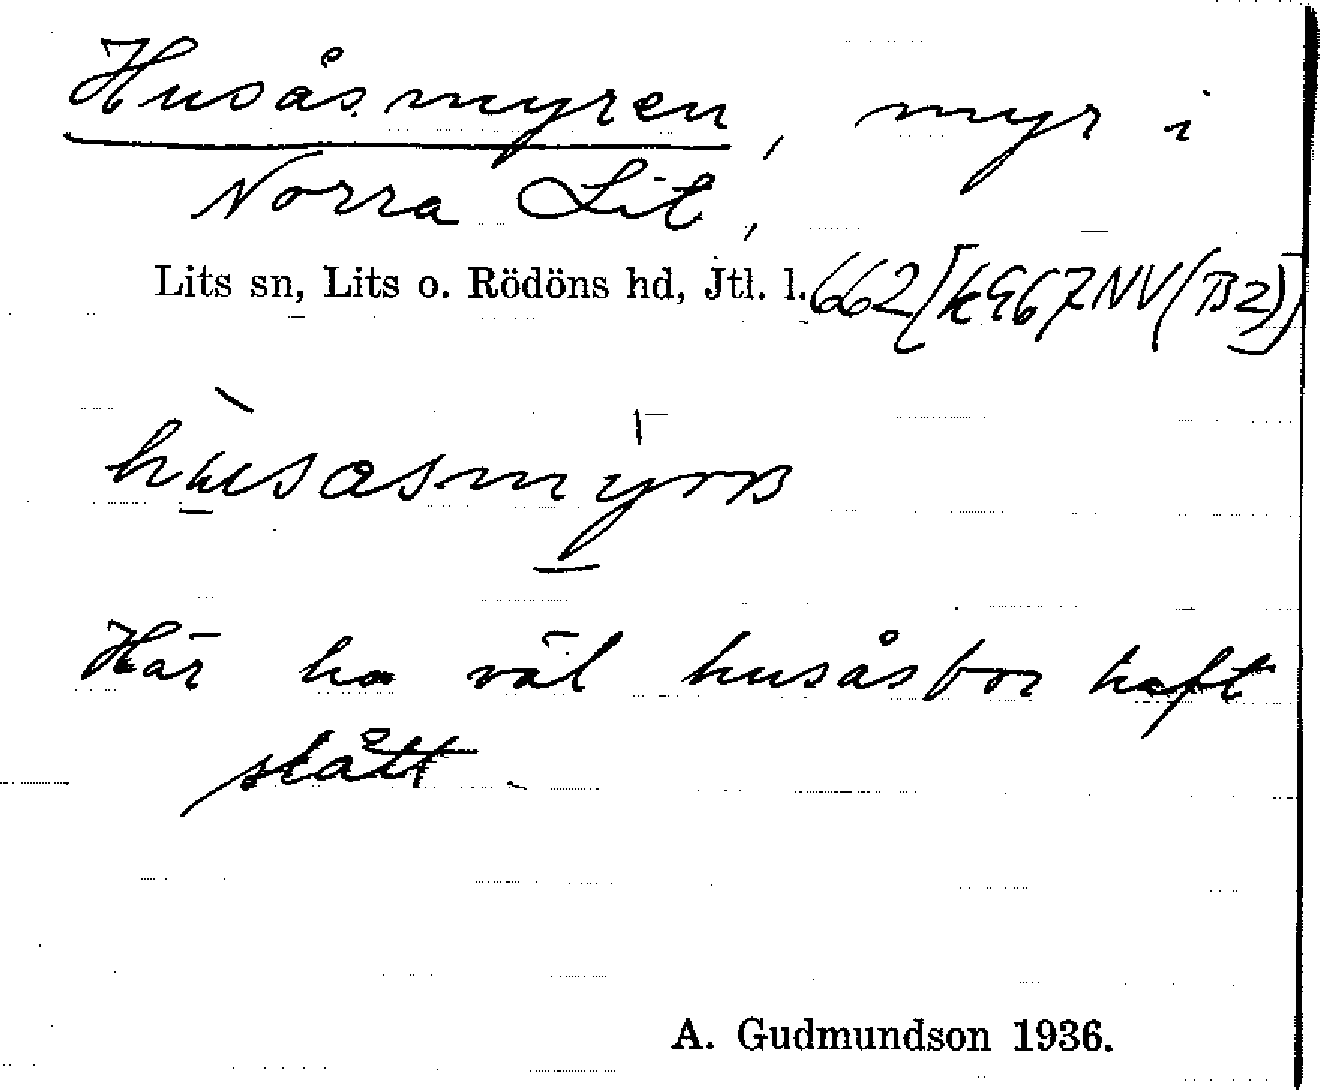 Husåsmyren, myr i
Norra Lit,
Lits sn, Lits o. Rödöns hd, Jtl. l. 662 [k967NV(B2)]
Här ha väl husåsbor haft
slått.
A. Gudmundson 1936.